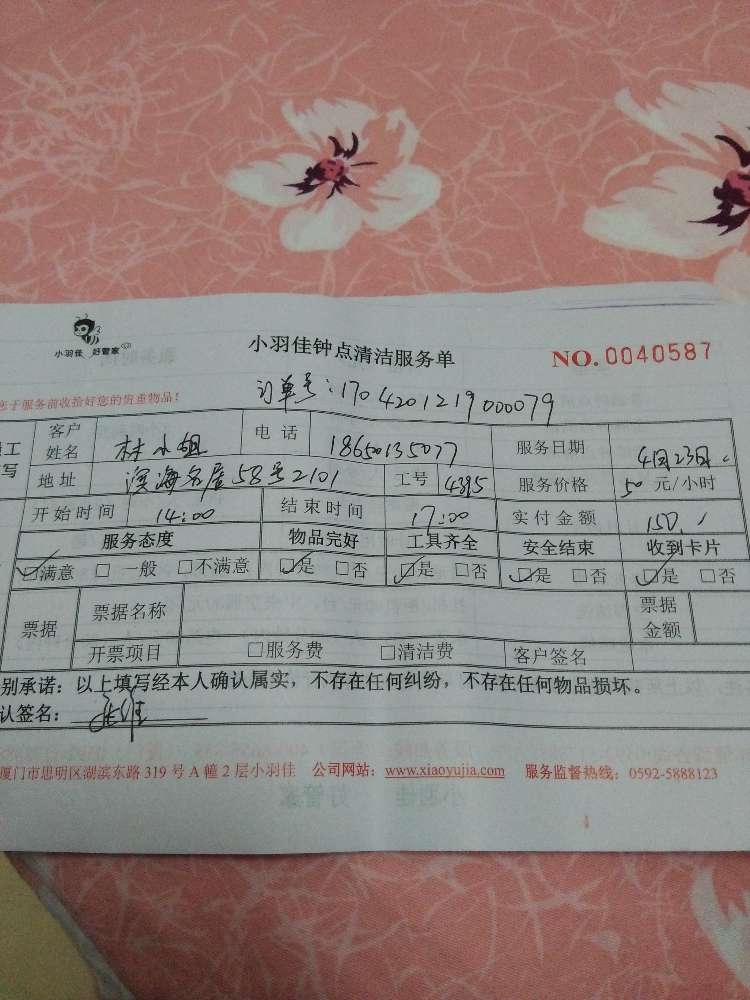 小羽佳 好管家
小羽佳钟点清洁服务单
NO. 0040587
于服务前收拾好您的贵重物品!
订单号:170420121900079
工 写
客户姓名 林小姐 电话 18650135077 服务日期 4月23日
地址 滨海名居58号2101 工号 4395 服务价格 50 元/小时
开始时间 14:00 结束时间 17:00 实付金额 150
服务态度 物品完好 工具齐全 安全结束 收到卡片
☑满意 □ 一般 □不满意 ☑是 □否 ☑是 □否 ☑是 □否 ☑是 □否
票据 票据名称 票据金额
开票项目 □服务费 □清洁费 客户签名
别承诺:以上填写经本人确认属实,不存在任何纠纷,不存在任何物品损坏。
认签名:
厦门市思明区湖滨东路 319 号 A 幢 2 层小羽佳 公司网站:www.xiaoyujia.com 服务监督热线:0592-5888123